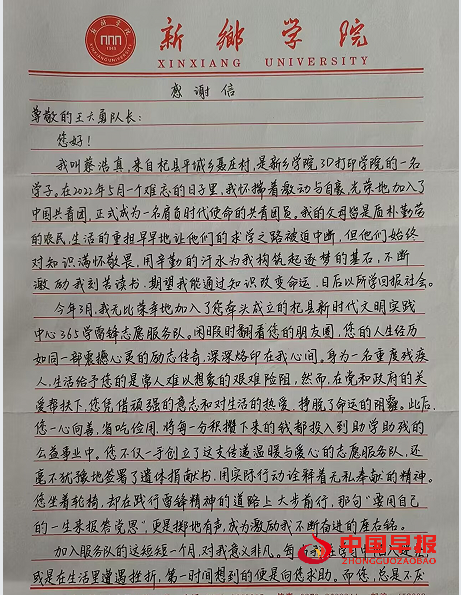 新鄉学院
XINXIANG UNIVERSITY
感谢信
尊敬的王大勇队长：
您好！
我叫蔡浩真，来自杞县平城乡聂庄村，是新乡学院3D打印学院的一名
学子。在2022年5月一个难忘的日子里，我怀揣着激动与自豪，光荣地加入了
中国共青团，正式成为一名肩负时代使命的共青团员。我的父母皆是质朴勤劳
的农民，生活的重担早早地让他们的求学之路被迫中断，但他们始终
对知识满怀敬畏，用辛勤的汗水为我构筑起逐梦的基石，不断
激励我刻苦读书，期望我能通过知识改变命运，日后以所学回报社会。
今年3月，我无比荣幸地加入了您牵头成立的杞县新时代文明实践
中心365学雷锋志愿服务队。闲暇时翻看您的朋友圈，您的人生经历
如同一部震撼心灵的励志传奇，深深烙印在我心间。身为一名重度残疾
人，生活给予您的是常人难以想象的艰难险阻，然而，在党和政府的关
爱帮扶下，您凭借顽强的意志和对生活的热爱，挣脱了命运的阴霾。此后，
您一心向善，省吃俭用，将每一分积攒下来的钱都投入到助学助残的
公益事业中。您不仅一手创立了这支传递温暖与爱心的志愿服务队，还
毫不犹豫地签署了遗体捐献书，用实际行动诠释着无私奉献的精神。
您坐着轮椅，却在践行雷锋精神的道路上大步前行，那句“要用自己
的一生来报答党恩”，更是掷地有声，成为激励我不断奋进的座右铭。
加入服务队的这短短一个月，对我意义非凡。每
或是在生活里遭遇挫折，第一时间想到的便是向您求助。而您，总是不厌
中国早报
ZHONGGUOZAOBAO